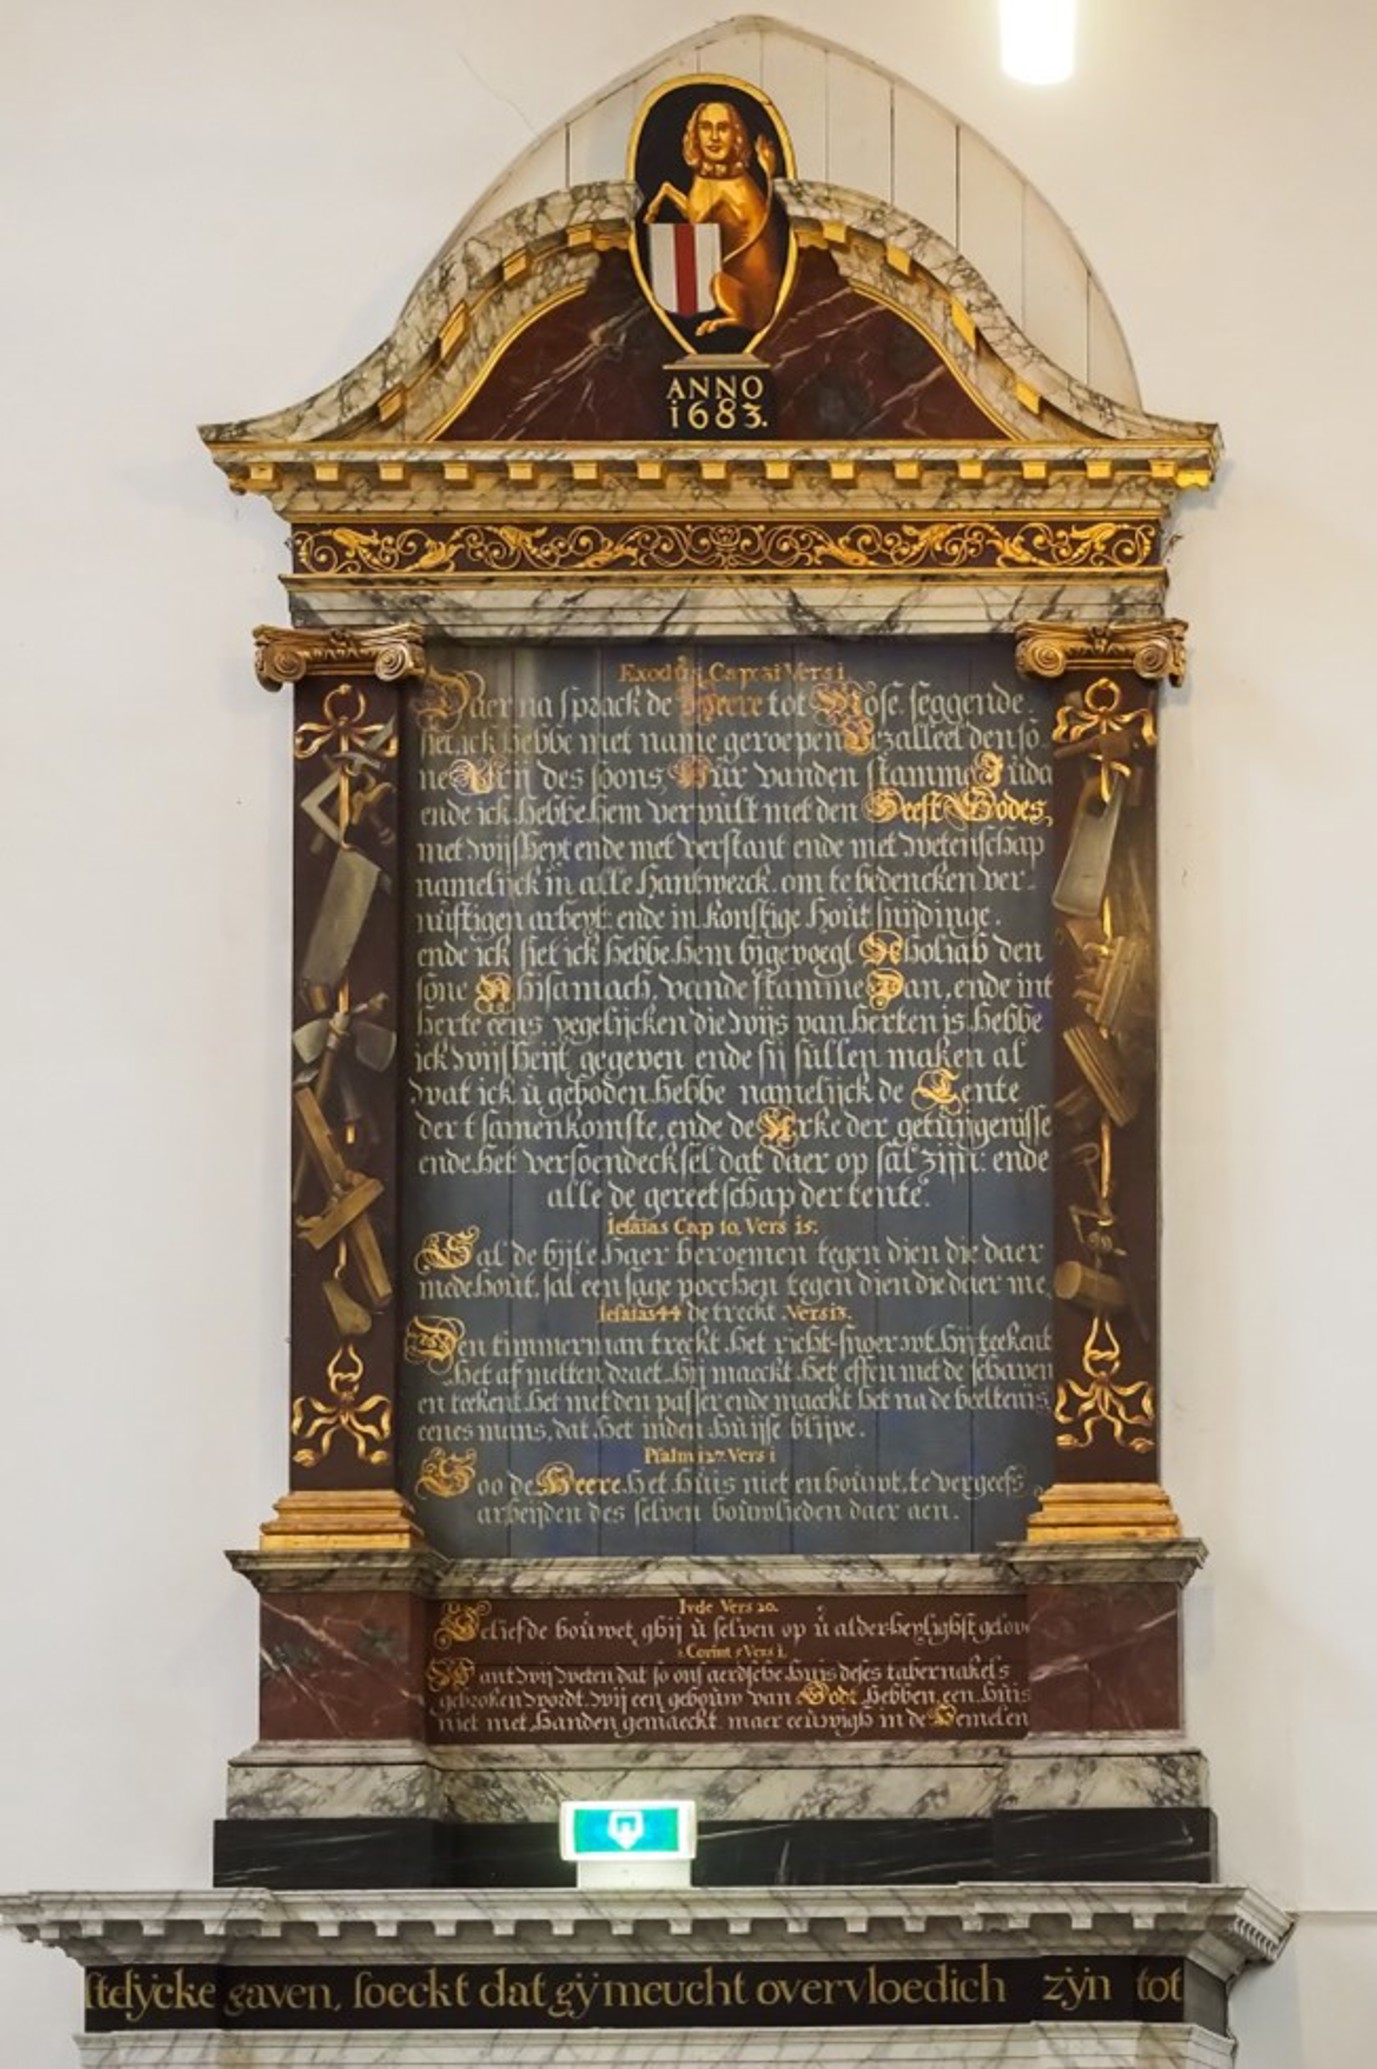 ANNO
1683.
Exodus Cap 31 Vers 1
Daer na sprack de Heere tot Mose. seggende.
siet, ick hebbe met name geroepen Bezalleel den so
ne Urij des soons, Hur vanden stamme Juda
ende ick hebbe hem vervult met den Geest Godes,
met wijsheyt ende met verstant ende met wetenschap
namelijck in alle hantwerck. om te bedencken ver-
nuftigen arbeyt: ende in konstige hout snijdinge.
ende ick siet ick hebbe hem bigevoegt Aholiab den
sone Ahisamach, vande stamme Dan, ende int
herte eens yegelijcken die wijs van herten is hebbe
ick wijsheijt gegeven ende sij sullen maken al
wat ick u geboden hebbe namelijck de Tente
der t samenkomste, ende de Arke der getuijgenisse
ende het versoendecksel dat daer op sal zijn: ende
alle de gereetschap der tente.
Iesaias Cap 10, Vers 15.
Sal de bijle haer beroemen tegen dien die daer
mede hout, sal een sage pocchen tegen dien die daer me,
Iesaias 44 de treckt . Vers 13.
Den timmerman treckt het richt-snoer wt. hij teekent
het af met en draet hij maeckt het effen met de schaven
en teekent het met den passer ende maeckt het na de beeltenis,
eenes mans, dat het inden huijse blijve.
Psalm 127. Vers 1
Soo de Heere het huis niet en bouwt, te vergeefs
arbeijden des selven bouwlieden daer aen.
Ivde Vers 20.
Geliefde bouwet ghij u selven op u alder-heylighst gelove
2 Corint 5 Vers 1.
Want wij weten dat so ons aerdsche huis deses tabernakels
gebroken wordt. wij een gebouw van Godt hebben een huis
niet met handen gemaeckt maer eeuwigh in de Hemelen
stelÿcke gaven, soeckt dat gÿ meucht overvloedich zÿn tot